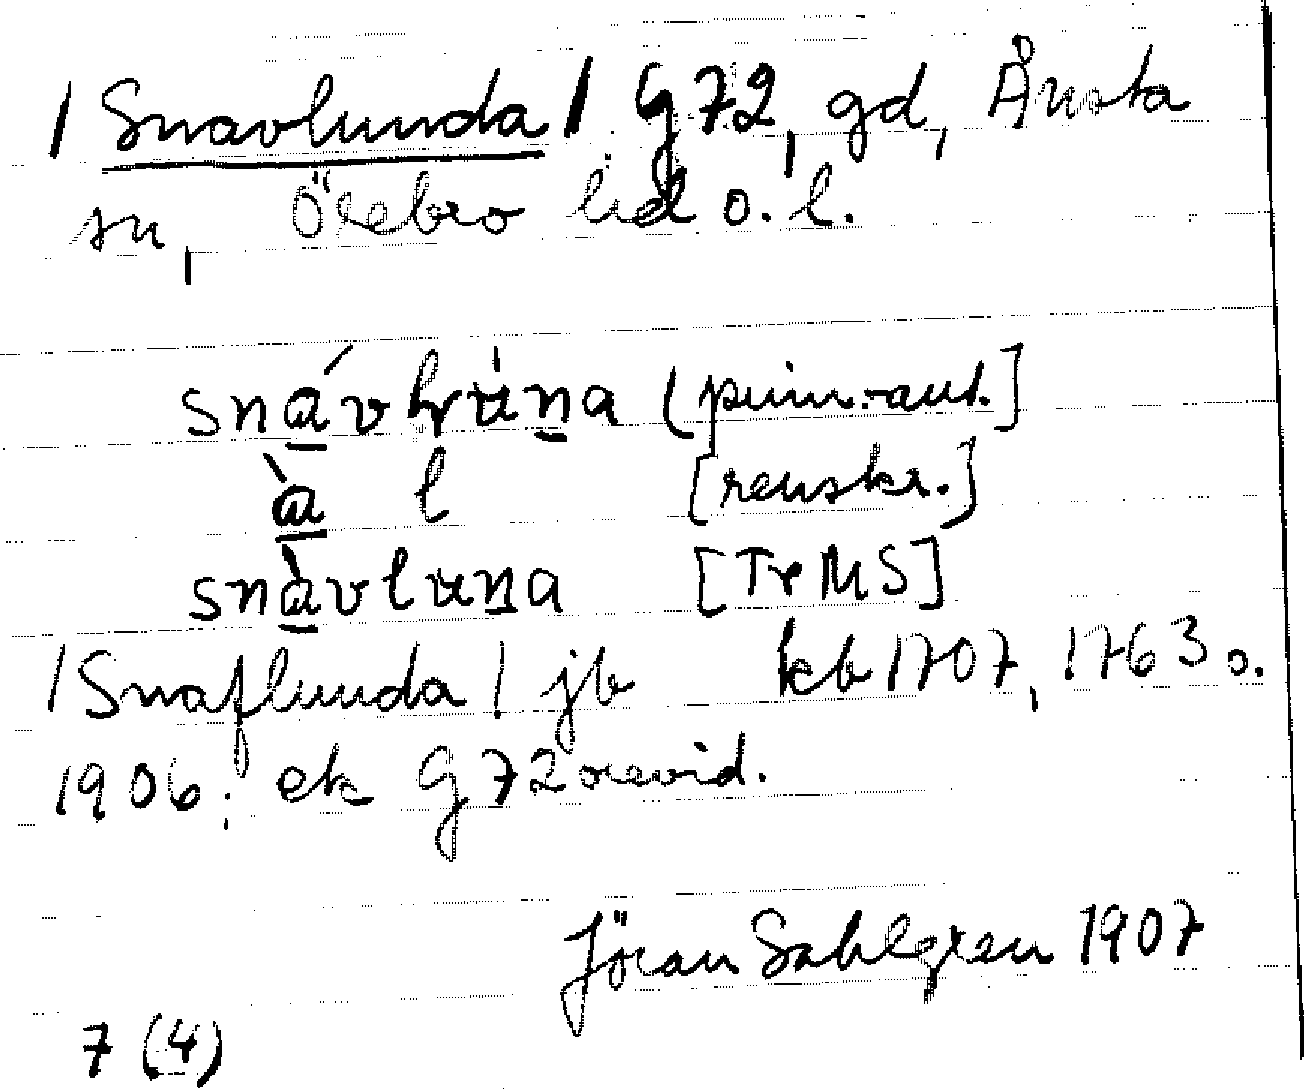 / Snavlunda / G72, gd, Ånsta
sn, Örebro lid o. l.
snávlruna (prim.-aut.]
à l [renskr.]
snàvluna [TrMS]
/ Snaflunda / jb kb 1707, 1763 o.
1906; ek G72 orevid.
Jöran Sahlgren 1907
7 (4)